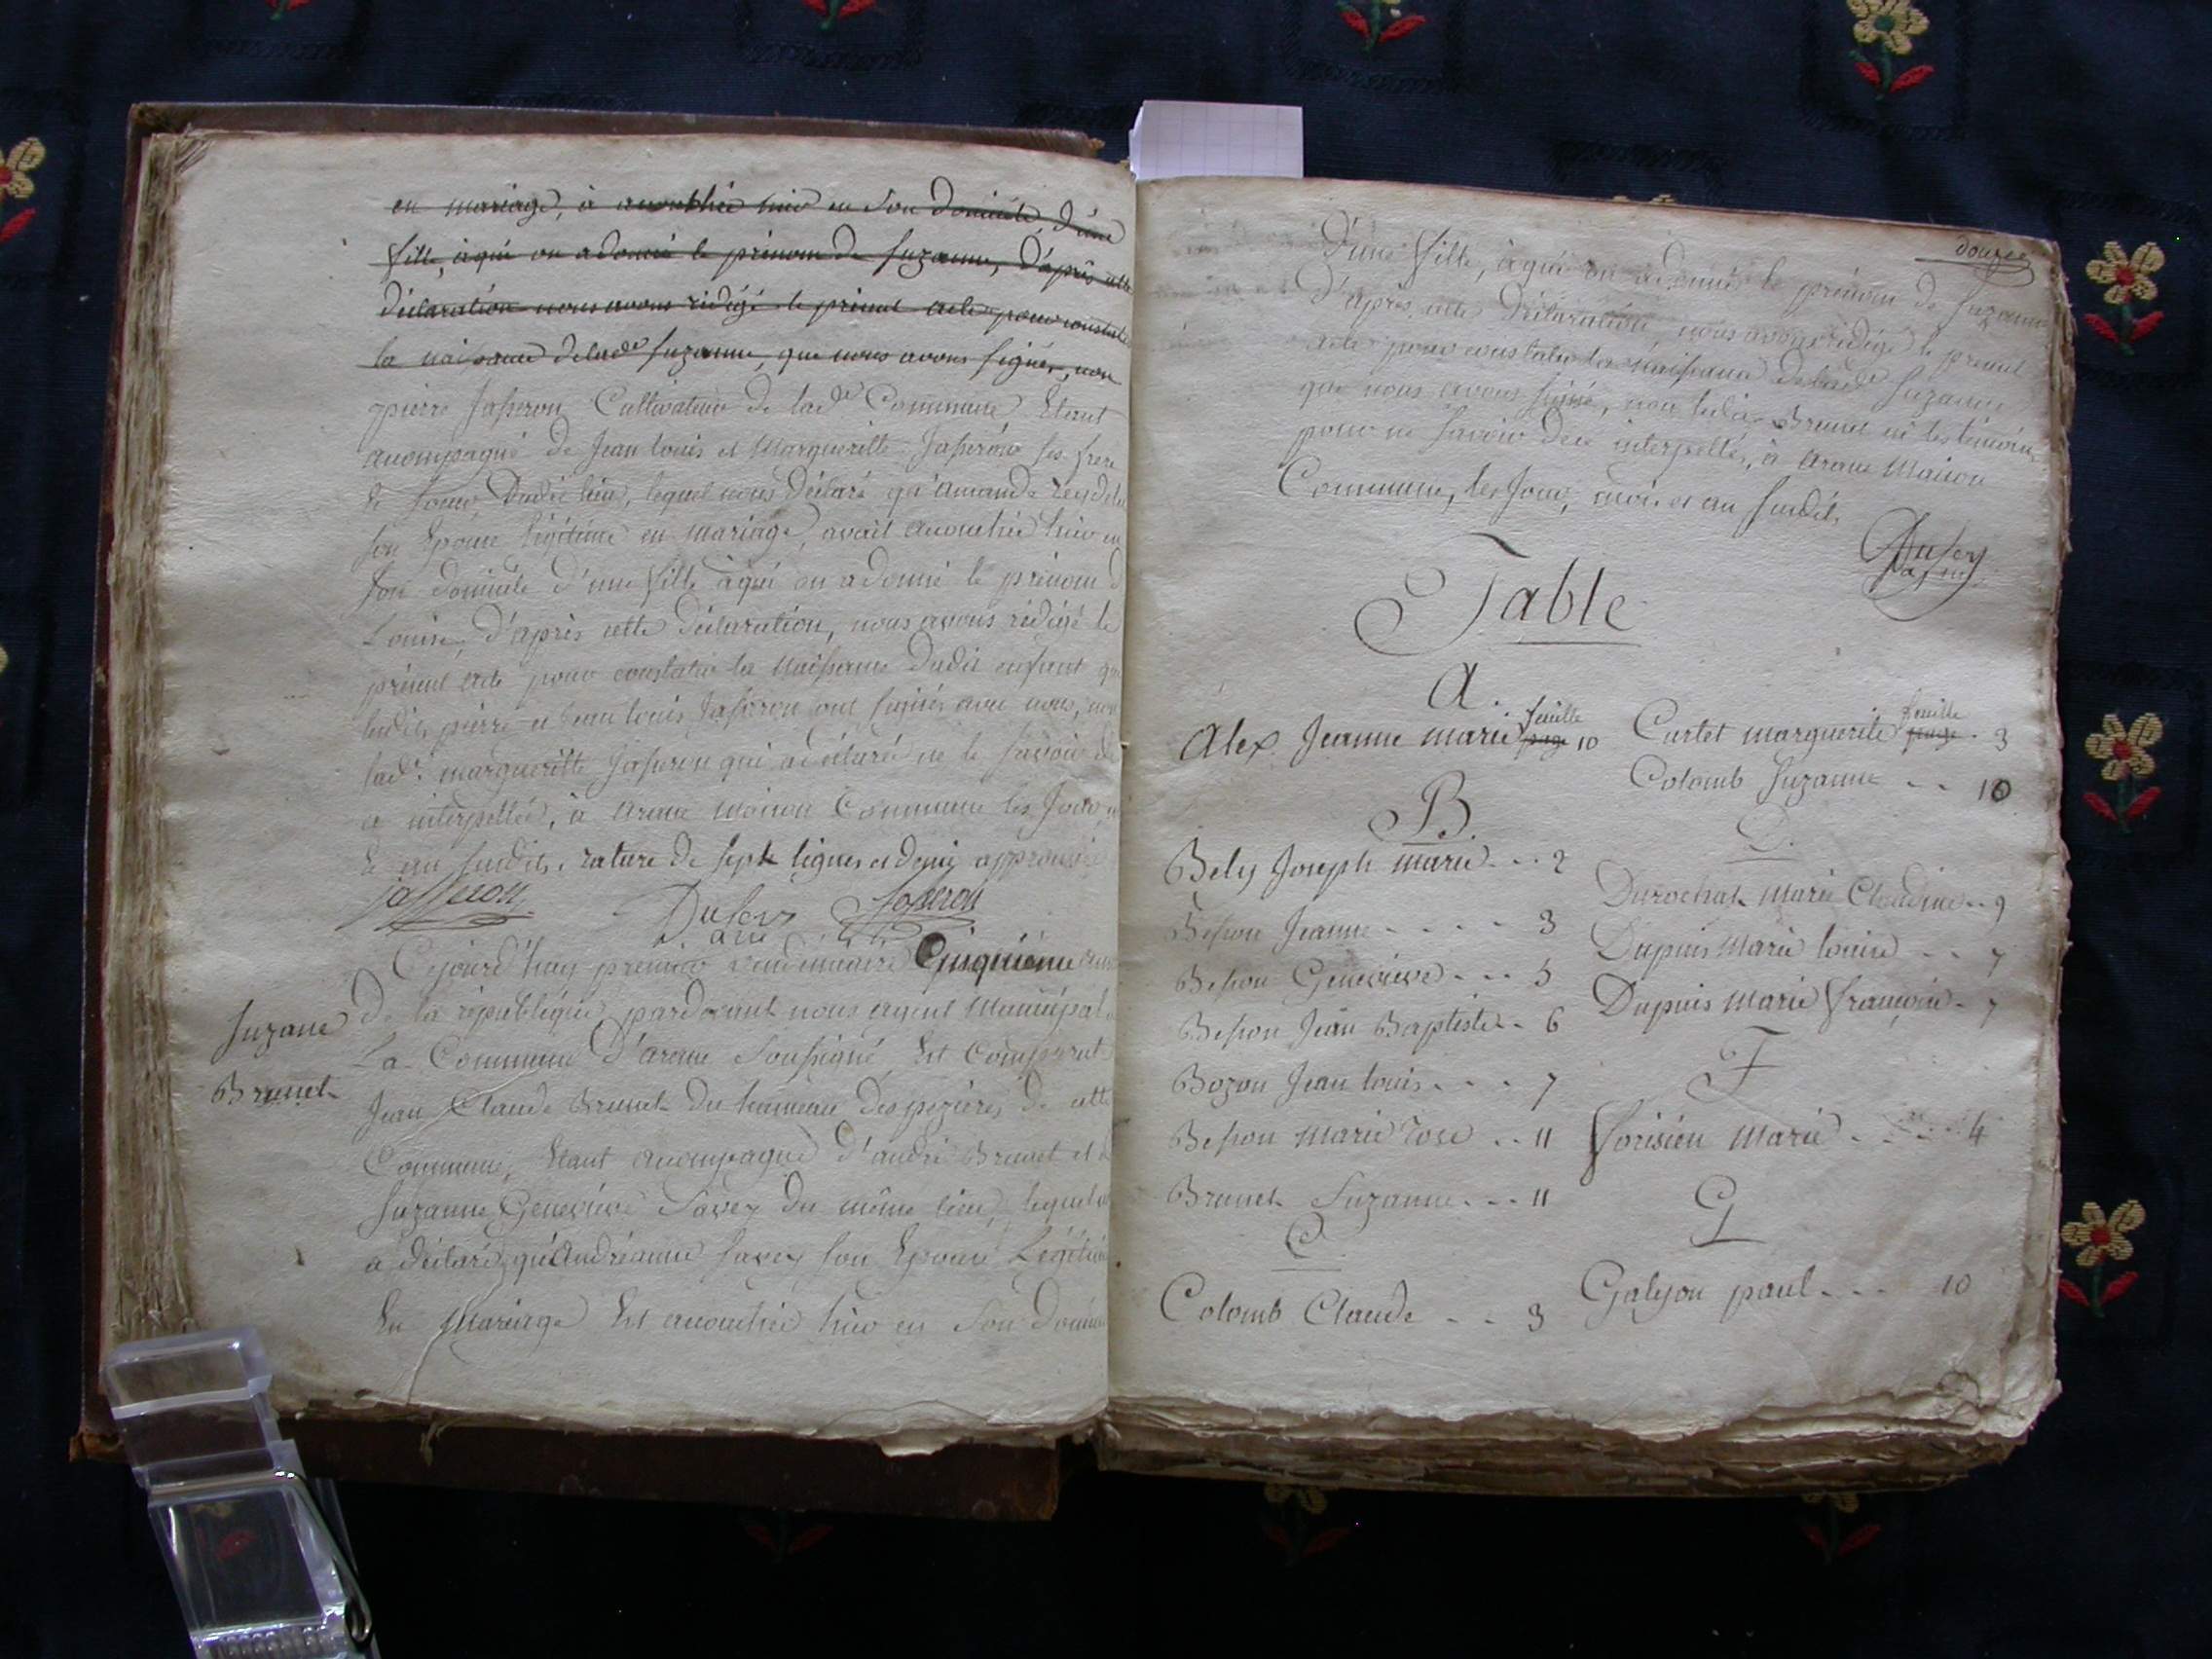 en mariage, à accouchée hier en son domicile d'une
fille, à qui on a donné le prénom de Suzanne, d'après cette
déclaration nous avons rédigé le présent acte pour constater
la naissance de lade Suzanne, que nous avons signé, non
pierre Jasseron Cultivateur de lade Commune Etant
acompagné de Jean louis et Margueritte Jasseron ses frere
Et soeur dudit lieu, lequel nous déclaré qu'amande
son Epouse légitime en mariage, avait accouchée hier en
son domicile d'une fille à qui on a donné le prénom d
Louise, d'après cette déclaration, nous avons rédigé le
présent acte pour constater la Naissance dudit enfant que
ledits pierre et Jean louis Jasseron ont signés avec nous, non
lade margueritte Jasseron qui a déclaré ne le savoir de
ce interpellée, à arane maison Commune les Jour,
Et an susdits. rature de sept lignes et demi approuvée
jasseron Dufer Jasseron
Cejourd'huy premier vendemiaire Cinquième
Suzane
Brunet
de la république pardevant nous agent Municipal
La Commune D'arane soussigné, Est Comparut
Jean Claude Brunet du hameau des pezieres de cette
Commune, Etant acompagné d'andré Brunet et d
Suzanne Genevieve Savey du même lieu, lequel
a déclaré qu'Andréanne Savey son Epouse Légitime
En Mariage Est accouchée hier en Son domi
douzee
D'une fille, à qui on a donné le prénom de Suzanne
D'après cette déclaration, nous avons rédigé le présent
acte pour constater la naissance de lade Suzanne
que nous avons signé, non ledit Brunet ni les témoins
pour ne savoir de ce interpellés, à arane Maison
Commune, les Jour, mois et an susdits
Dufer
Table
A.
Alex Jeanne marie feuille page 10
B.
Bely Joseph marie - - - 2
Besson Jeanne - - - - - 3
Besson Genevieve - - - 5
Besson Jean Baptiste - - 6
Bozon Jean louis - - - - 7
Besson marie rose - - 11
Brunet Suzanne - - - 11
C
Colomb Claude - - 3
Curtet marguerite feuille page - 3
Colomb Suzanne - - 10
D.
Durochat Marie Claudine - - 9
Dupuis Marie louise - - 7
Dupuis Marie françoise - 7
F
forisien Marie - - - - 4
G
Galyon paul - - - 10